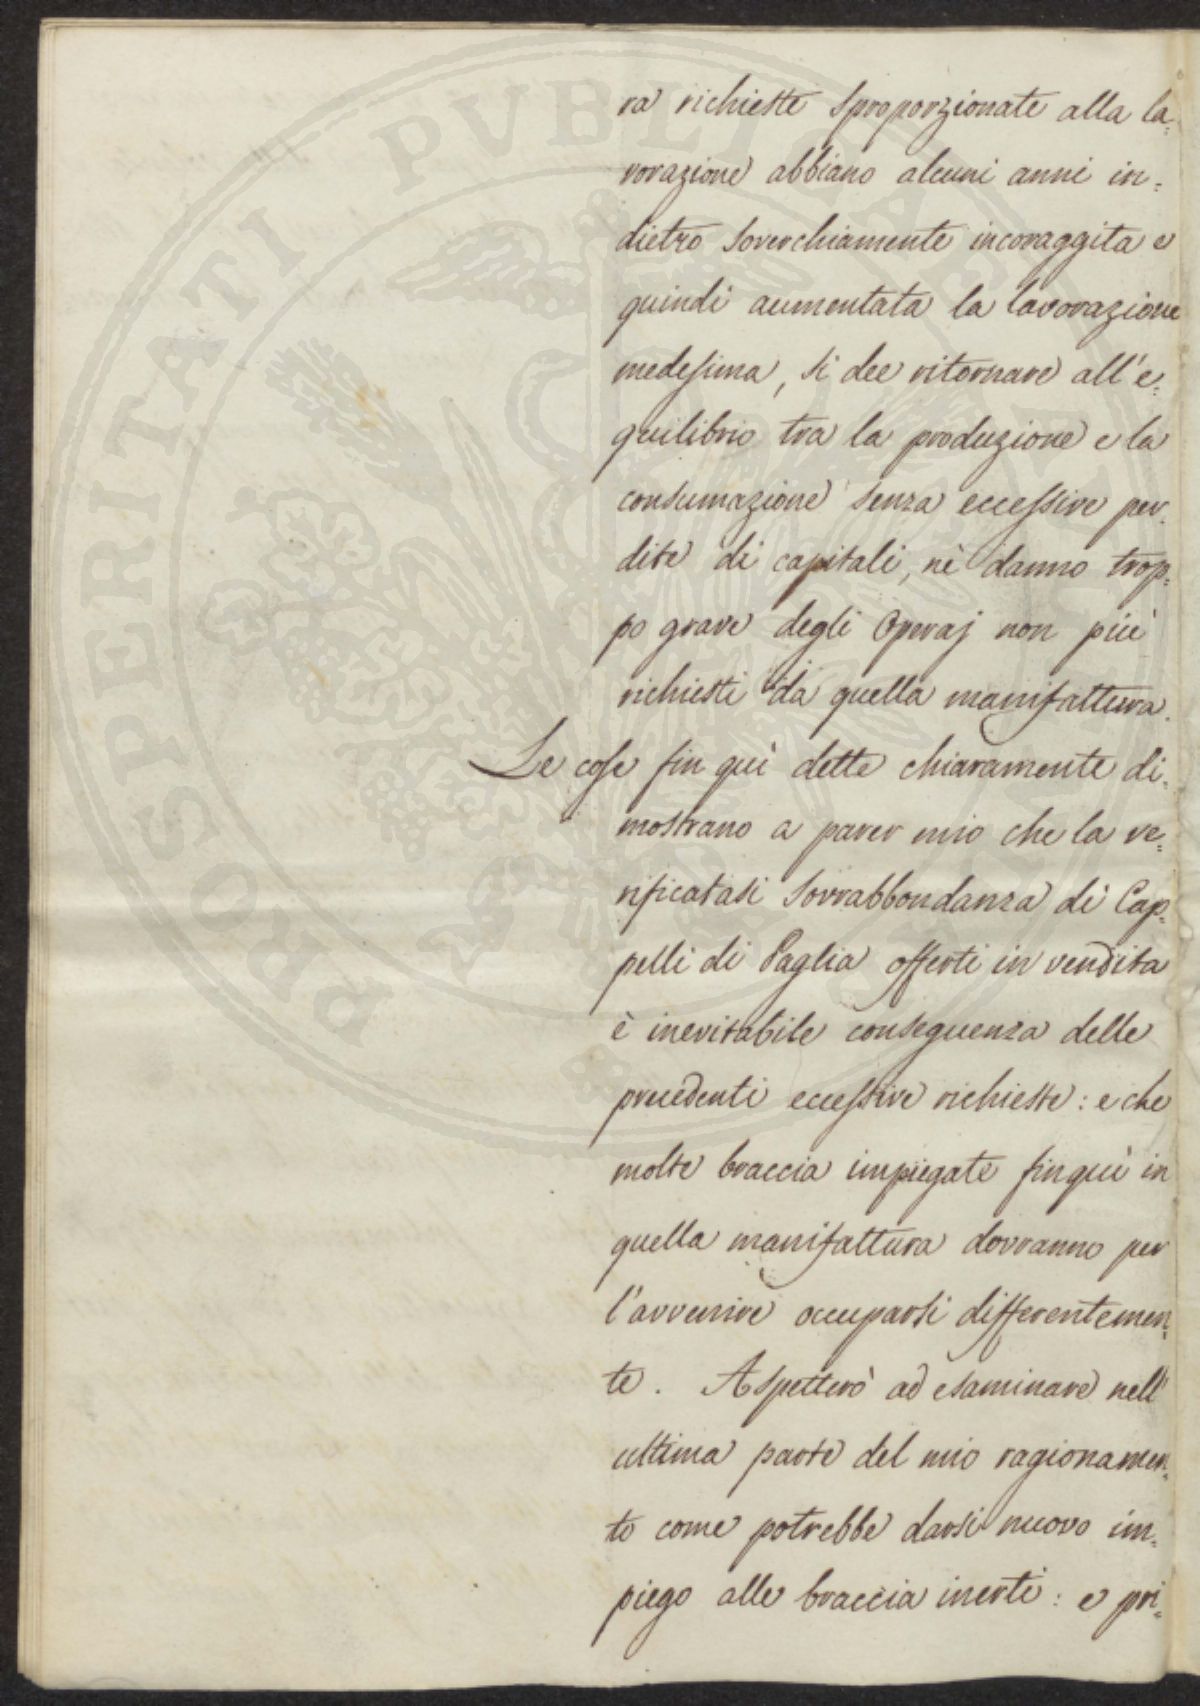 ra richieste sproporzionate alla la=
vorazione abbiano alcuni anni in=
dietro soverchiamente incoraggita e
quindi aumentata la lavorazione
medesima, si dee ritornare all'e=
quilibrio tra la produzione e la
consumazione senza eccessive per=
dite di capitali, nè danno trop=
po grave degli Operaj non più
richiesti da quella manifattura.
Le cose fin quì dette chiaramente di=
mostrano a parer mio che la ve=
rificatasi sovrabbondanza di Cap=
pelli di Paglia offerti in vendita
è inevitabile conseguenza delle
precedenti eccessive richieste: e che
molte braccia impiegate finquì in
quella manifattura dovranno per
l'avvenire occuparsi differentemen=
te. Aspetterò ad esaminare nell'
ultima parte del mio ragionamen=
to come potrebbe darsi nuovo im=
piego alle braccia inerti: e pri=
PROSPERITATI PVBLICAE